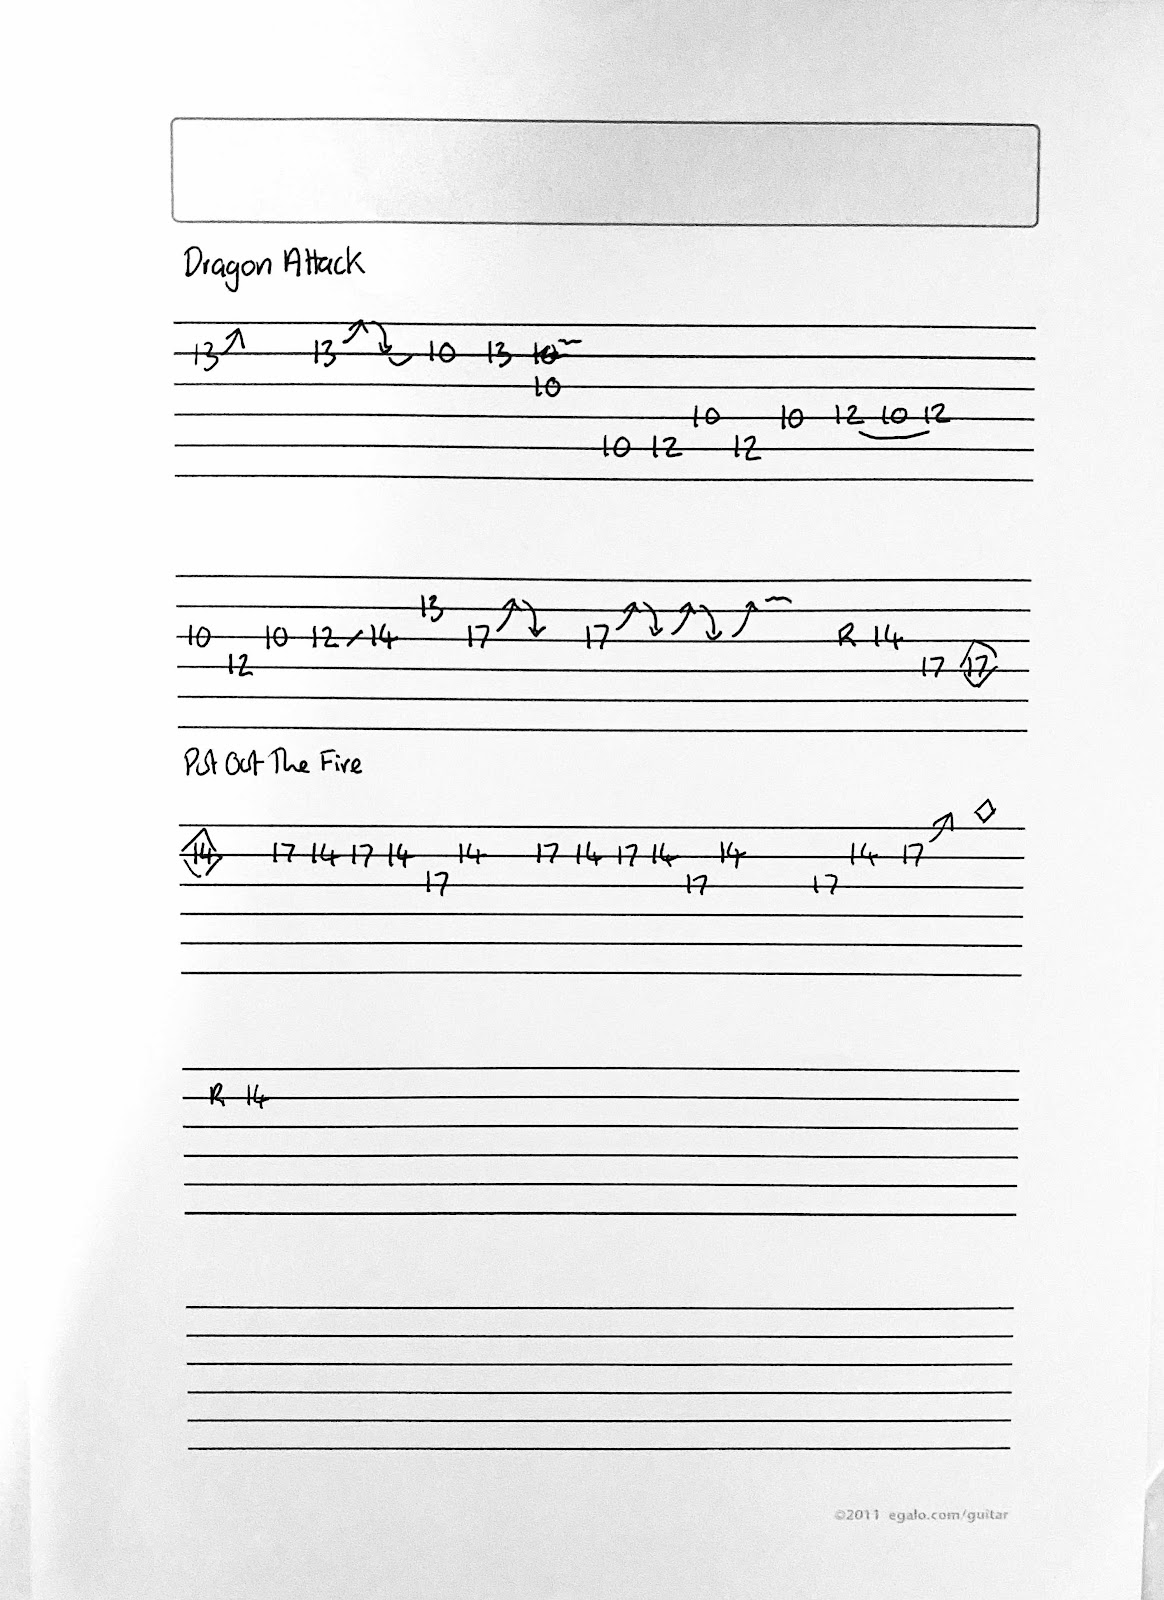 Dragon Attack
13 13 10 13 10
10
10 10 12 10 12
10 12 12
13
10 10 12 / 14 17 17 R 14
12 17 17
Put Out The Fire
14 17 14 17 14 14 17 14 17 14 14 14 17
17 17 17
R 14
©2011 egalo.com/guitar